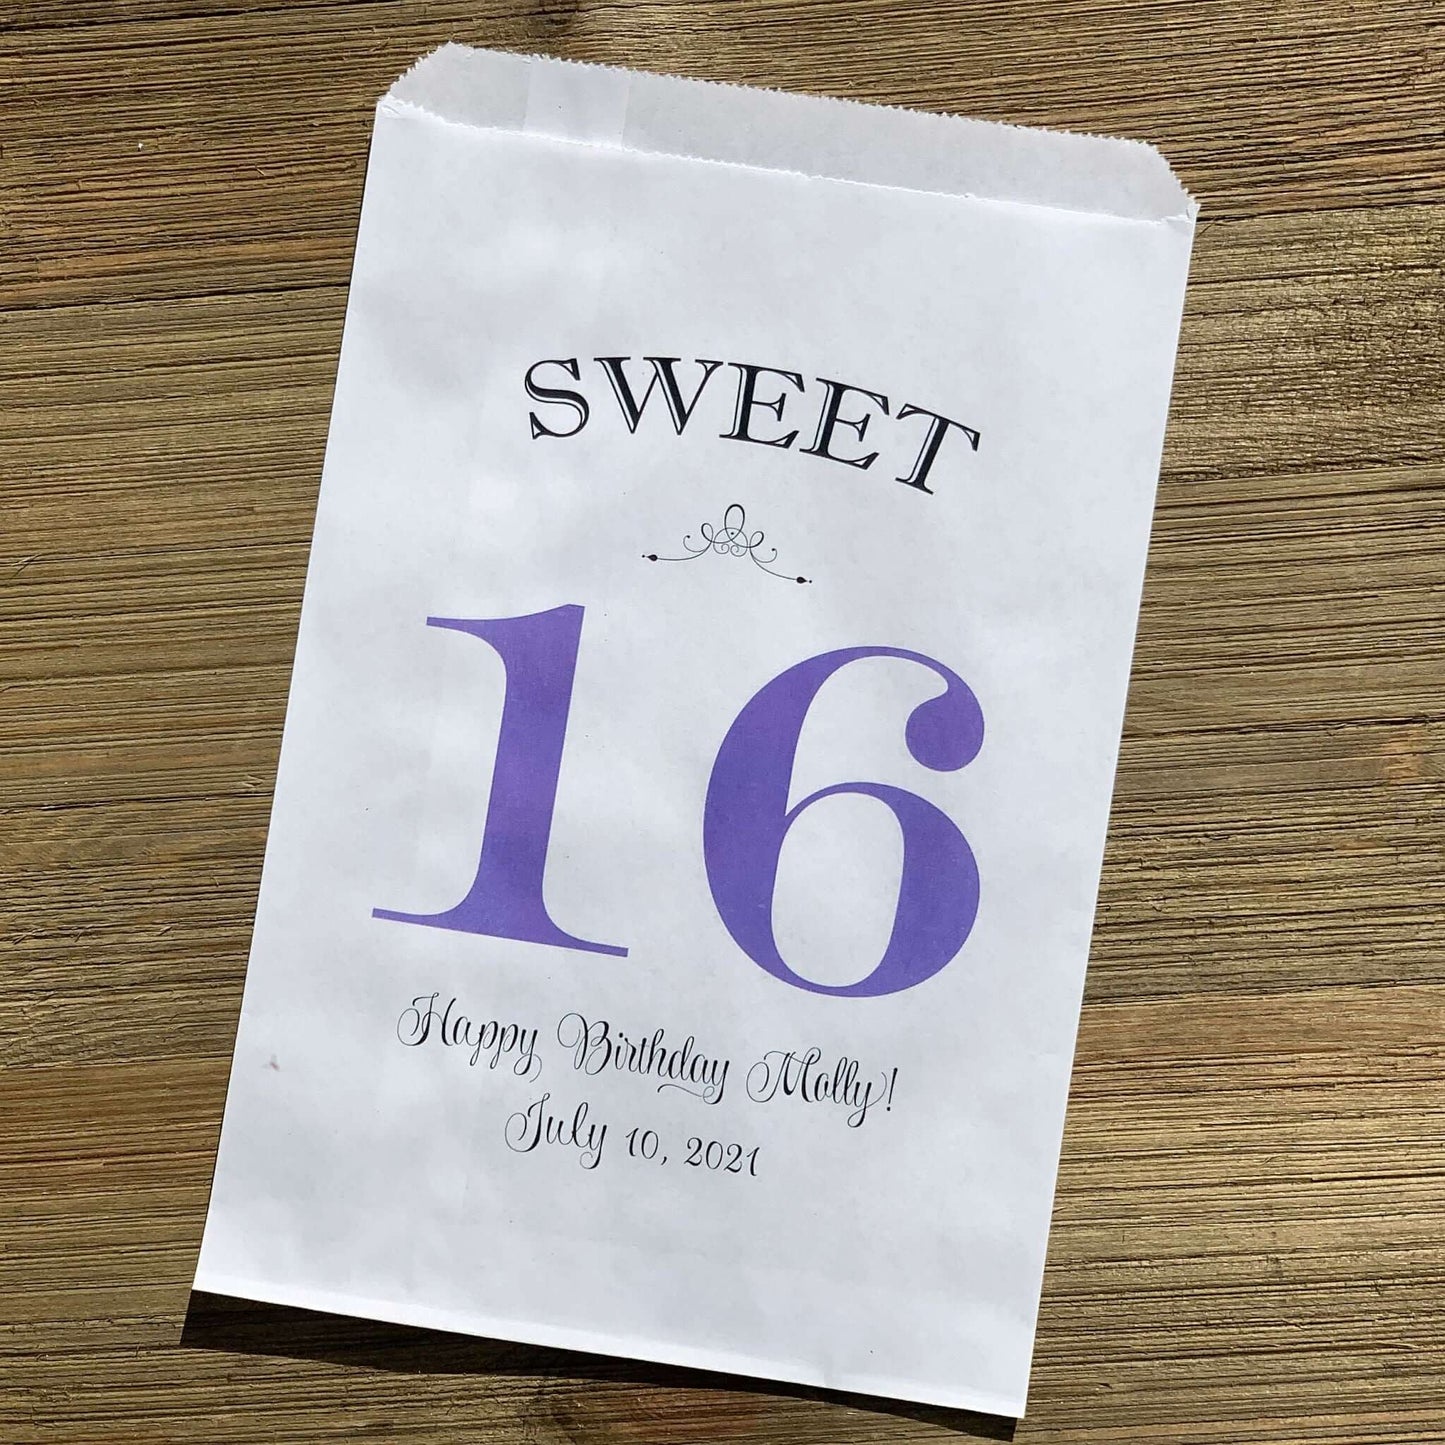 SWEET
16
Happy Birthday Molly!
July 10, 2021